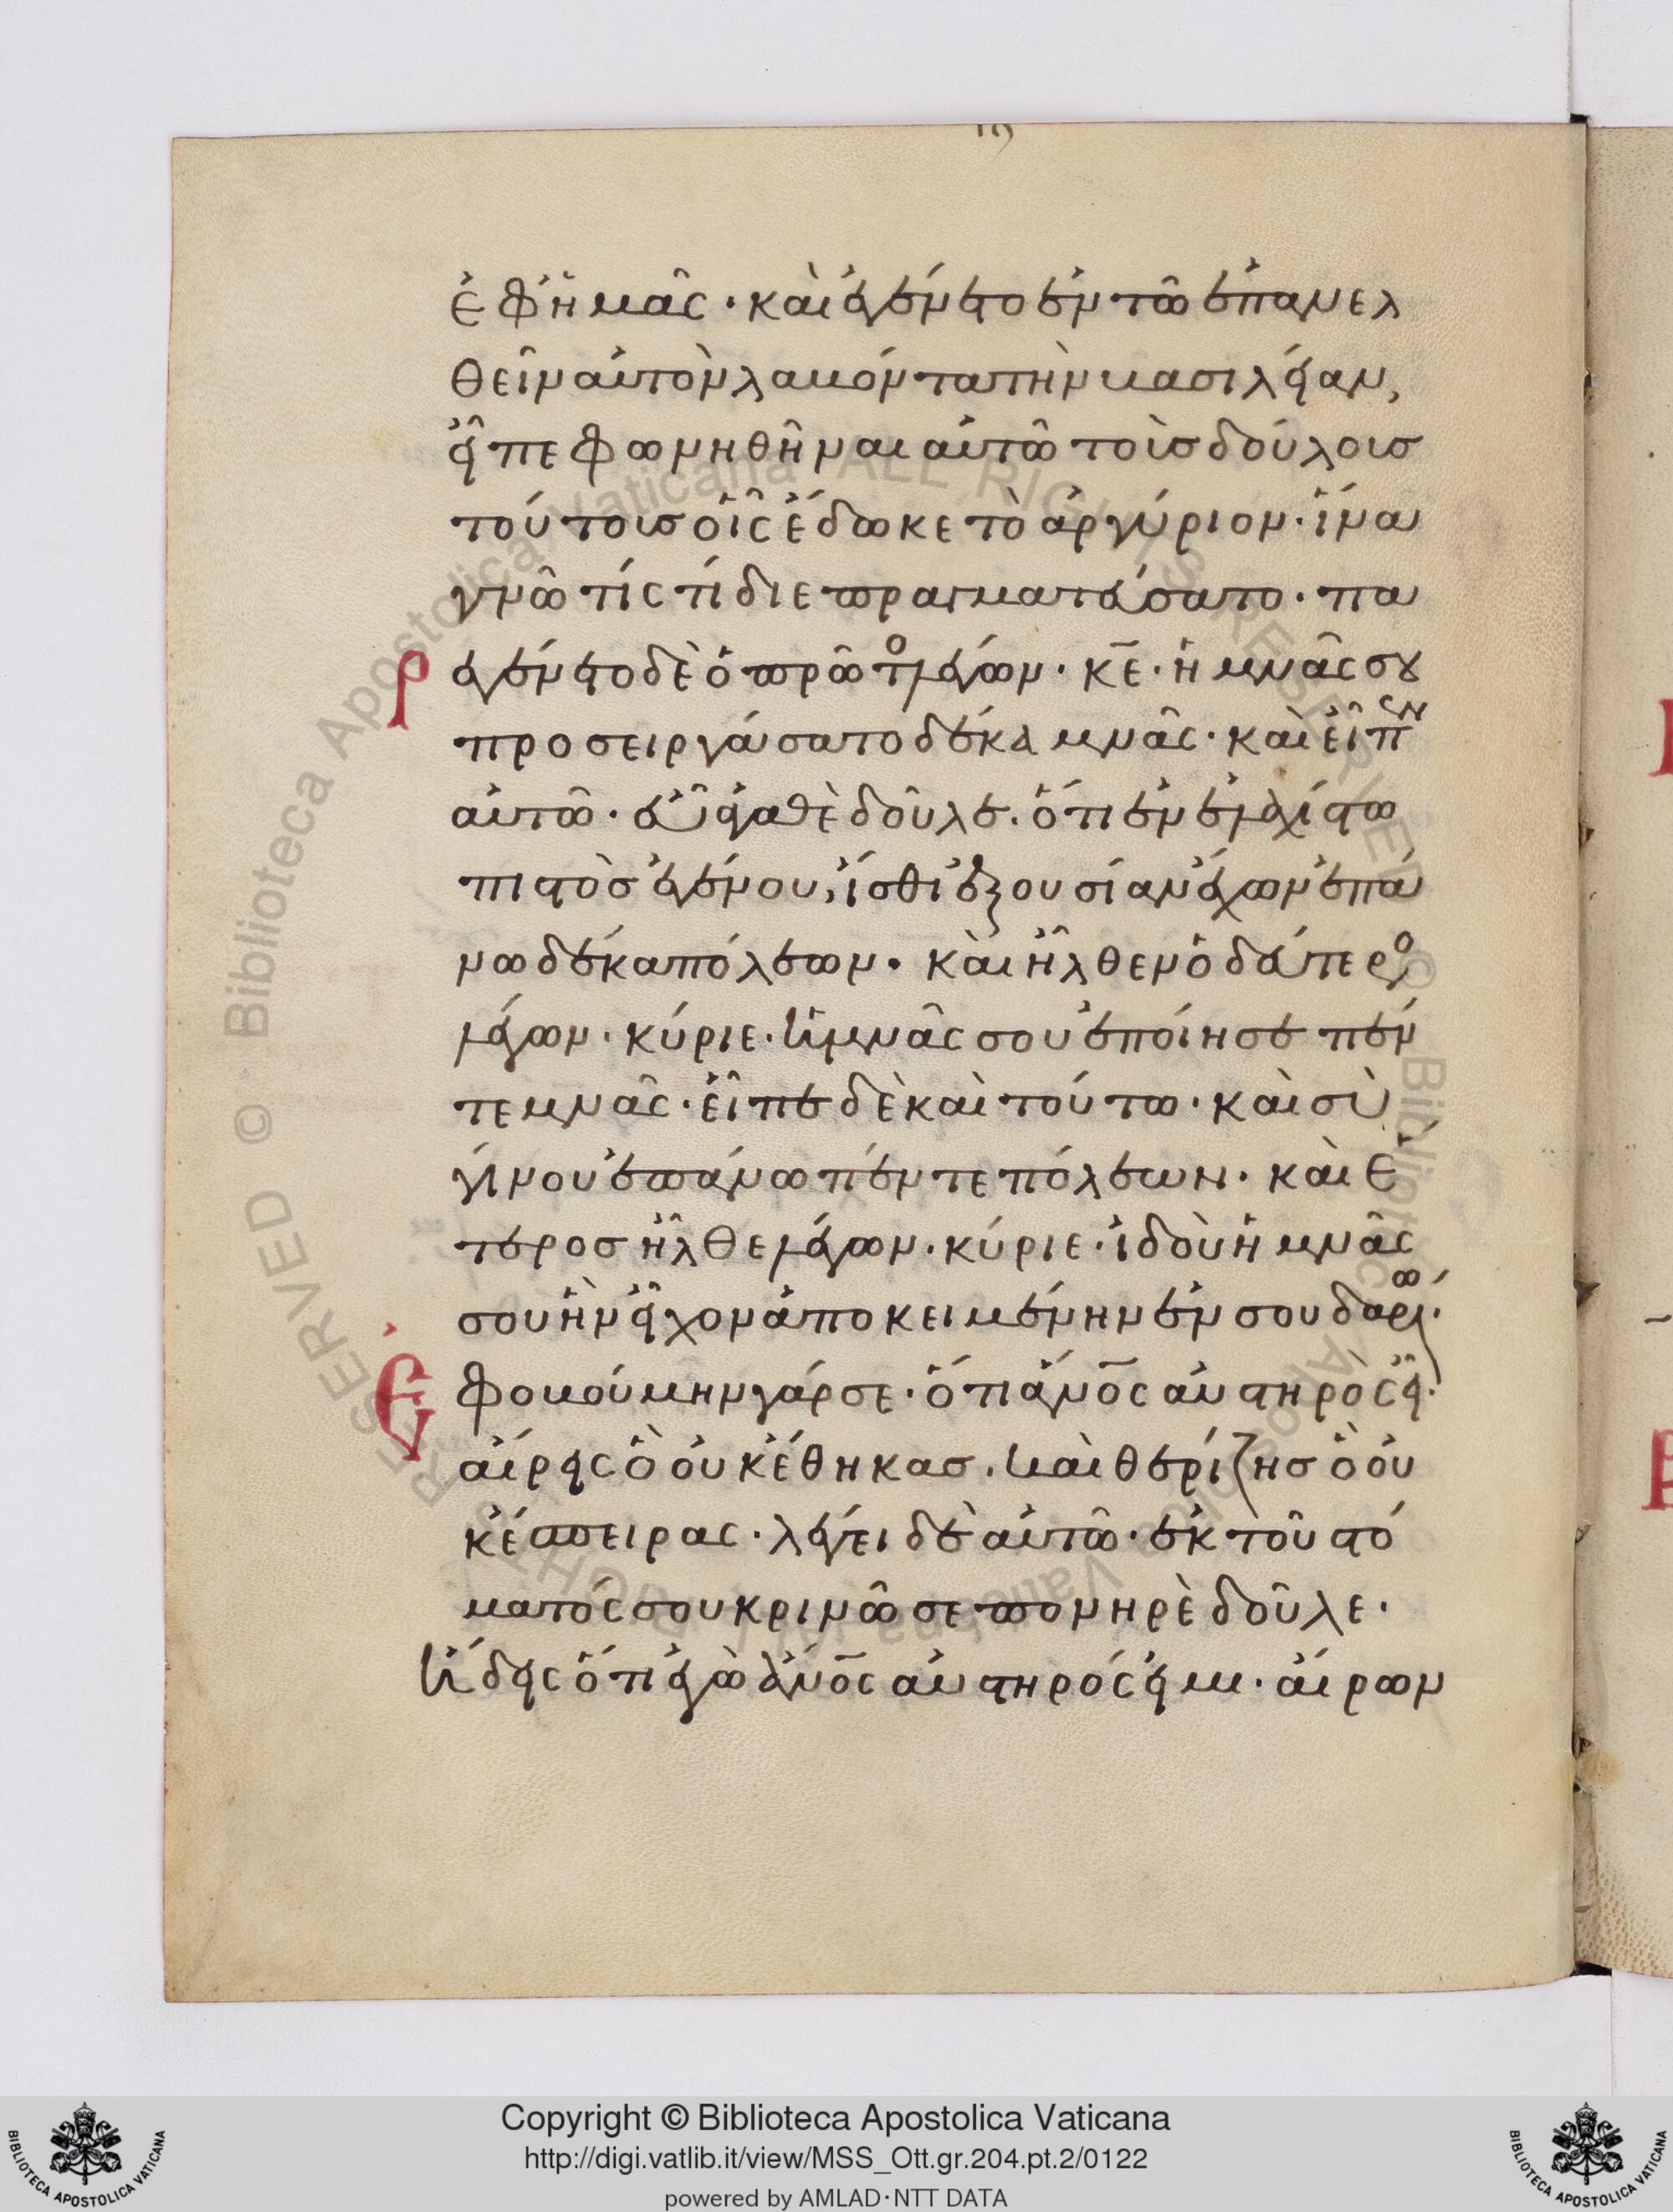 ἐφ' ἡμᾶς· καὶ ἐγένετο ἐν τῶ ἐπανελ
θεῖν αὐτὸν λαβόντα τὴν βασιλείαν,
εἶπε φωνηθῆναι αὐτῶ τοὺς δούλους
τούτους οἷς ἔδωκε τὸ ἀργύριον· ἵνα
γνῶ τίς τί διεπραγματεύσατο· πα
ρεγένετο δὲ ὁ πρῶτος λέγων· κε̅· ἡ μνᾶς σου
προσειργάσατο δέκα μνᾶς· καὶ εἶπεν
αὐτῶ· εὖ ἀγαθὲ δοῦλε· ὅτι ἐν ἐλαχίστω
πιστὸς ἐγένου, ἴσθι ἐξουσίαν ἔχων ἐπά
νω δέκα πόλεων· καὶ ἦλθεν ὁ δεύτερος
λέγων· κύριε· ἡ μνᾶς σου ἐποίησε πέν
τε μνᾶς· εἶπε δὲ καὶ τούτω· καὶ σὺ
γίνου ἐπάνω πέντε πόλεων· καὶ ἕ
τερος ἦλθε λέγων· κύριε· ἰδοὺ ἡ μνᾶς
σου ἣν εἶχον ἀποκειμένην ἐν σουδαρίω·
ἐφοβούμην γάρ σε· ὅτι ἄνο̅ς αὐστηρὸς εἶ·
αἴρεις ὃ οὐκ ἔθηκας· καὶ θερίζης ὃ οὐ
κ ἔσπειρας· λέγει δὲ αὐτῶ· ἐκ τοῦ στό
ματός σου κρινῶ σε πονηρὲ δοῦλε·
ἤδεις ὅτι ἐγὼ ἄνο̅ς αὐστηρός εἰμι· αἴρων
Copyright © Biblioteca Apostolica Vaticana
http://digi.vatlib.it/view/MSS_Ott.gr.204.pt.2/0122
powered by AMLAD·NTT DATA